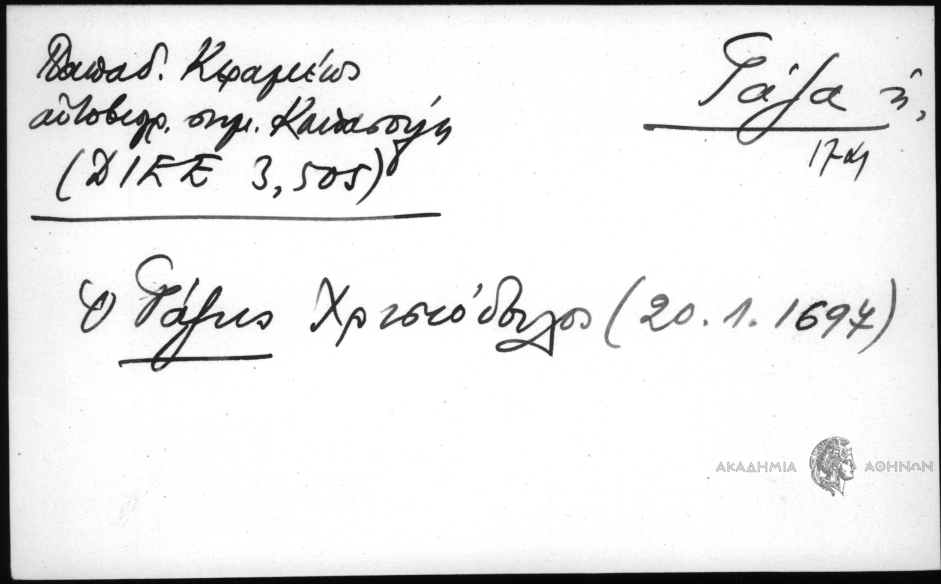 Παπαδ. Κεραμέως
αὐτοβιογρ. σημ. Καισαρ
(ΔΙΕΕ 3, 505)
Γάζα ἡ,
17-
ὁ Γάζης Χριστόδουλος (20.1.1697)
ΑΚΑΔΗΜΙΑ ΑΘΗΝΩΝ